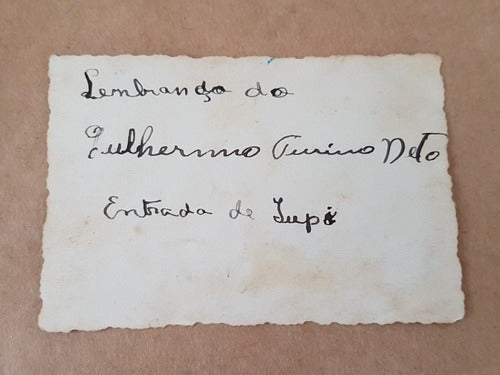 Lembrança do
Guilhermino Turino Neto
Entrada de Tupi